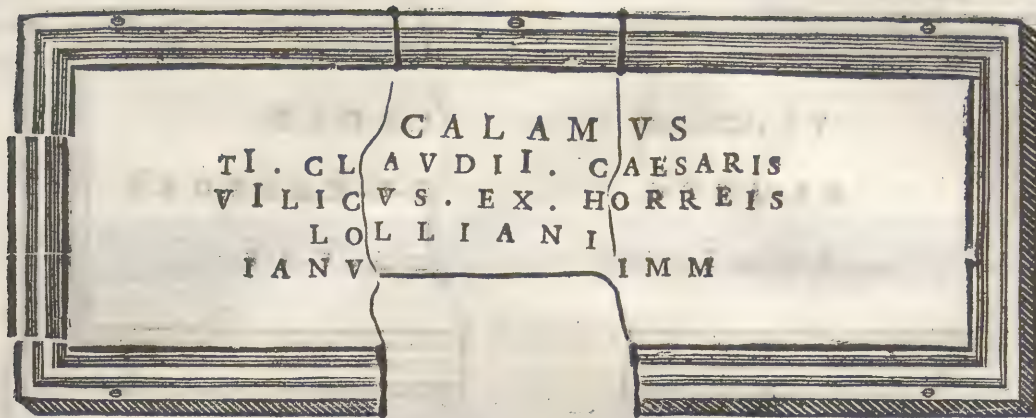 CALAMVS
TI. CLAVDII. CAESARIS
VILICVS. EX. HORREIS
LOLLIANI
IANV IMM